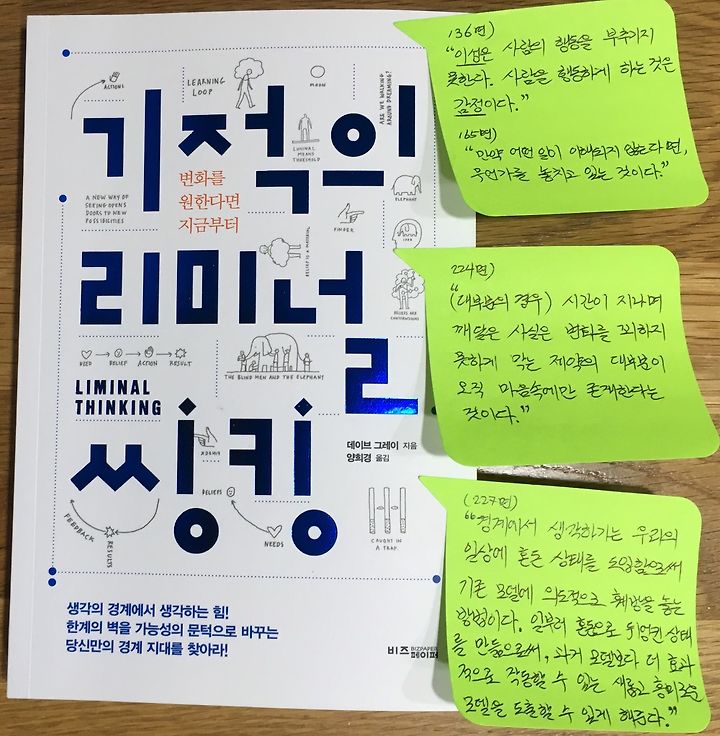 ACTIONS
LEARNING
LOOP
MORON
ARE WE WALKING
AROUND DREAMING?
LIMINAL
MEANS
THRESHOLD
기적의
변화를
원한다면
지금부터
A NEW WAY OF
SEEING OPENS
DOORS TO NEW
POSSIBILITIES
ELEPHANT
FINGER
IDEA
BELIEF IS A MATERIAL
리미널
BELIEFS ARE
NEED → BELIEF → ACTION → RESULT
THE BLIND MEN AND THE ELEPHANT
LIMINAL
THINKING
데이브 그레이 지음
양희경 옮김
씽킹
BELIEFS
NEEDS
FEEDBACK
RESULTS
CAUGHT IN
A TRAP
생각의 경계에서 생각하는 힘!
한계의 벽을 가능성의 문턱으로 바꾸는
당신만의 경계 지대를 찾아라!
비즈 BIZPAPER
페이퍼
136면)
"이성은 사람의 행동을 부추기지
못한다. 사람을 행동하게 하는 것은
감정이다."
165면)
"만약 어떤 일이 이해되지 않는다면,
무언가를 놓치고 있는 것이다."
224면)
"(대부분의 경우) 시간이 지나며
깨달은 사실은 변화를 꾀하지
못하게 막는 제약의 대부분이
오직 마음속에만 존재한다는
것이다."
(227면)
"경계에서 생각하기는 우리의
일상에 혼돈 상태를 도입함으로써
기존 모델에 의도적으로 훼방을 놓는
방법이다. 일부러 혼돈으로 뒤엉킨 상태
를 만듦으로써, 과거 모델보다 더 효과
적으로 작동할 수 있는 새롭고 흥미로운
모델을 도출할 수 있게 해준다."